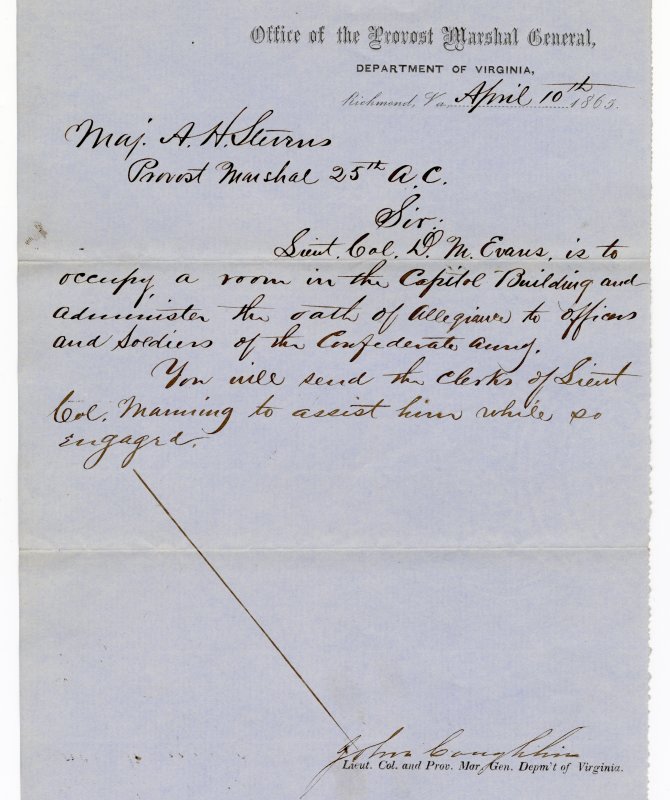 Office of the Provost Marshal General,
DEPARTMENT OF VIRGINIA,
Richmond, Va. April 10th 1865.
Maj. A. H. Stevens
Provost Marshal 25th A. C.
Sir:
Lieut. Col. D. M. Evans, is to
occupy a room in the Capitol Building and
administer the oath of Allegiance to officers
and Soldiers of the Confederate army.
You will send the clerks of Lieut
Col. Manning to assist him while so
engaged.
John Coughlin
Lieut. Col. and Prov. Mar. Gen. Depm't of Virginia.